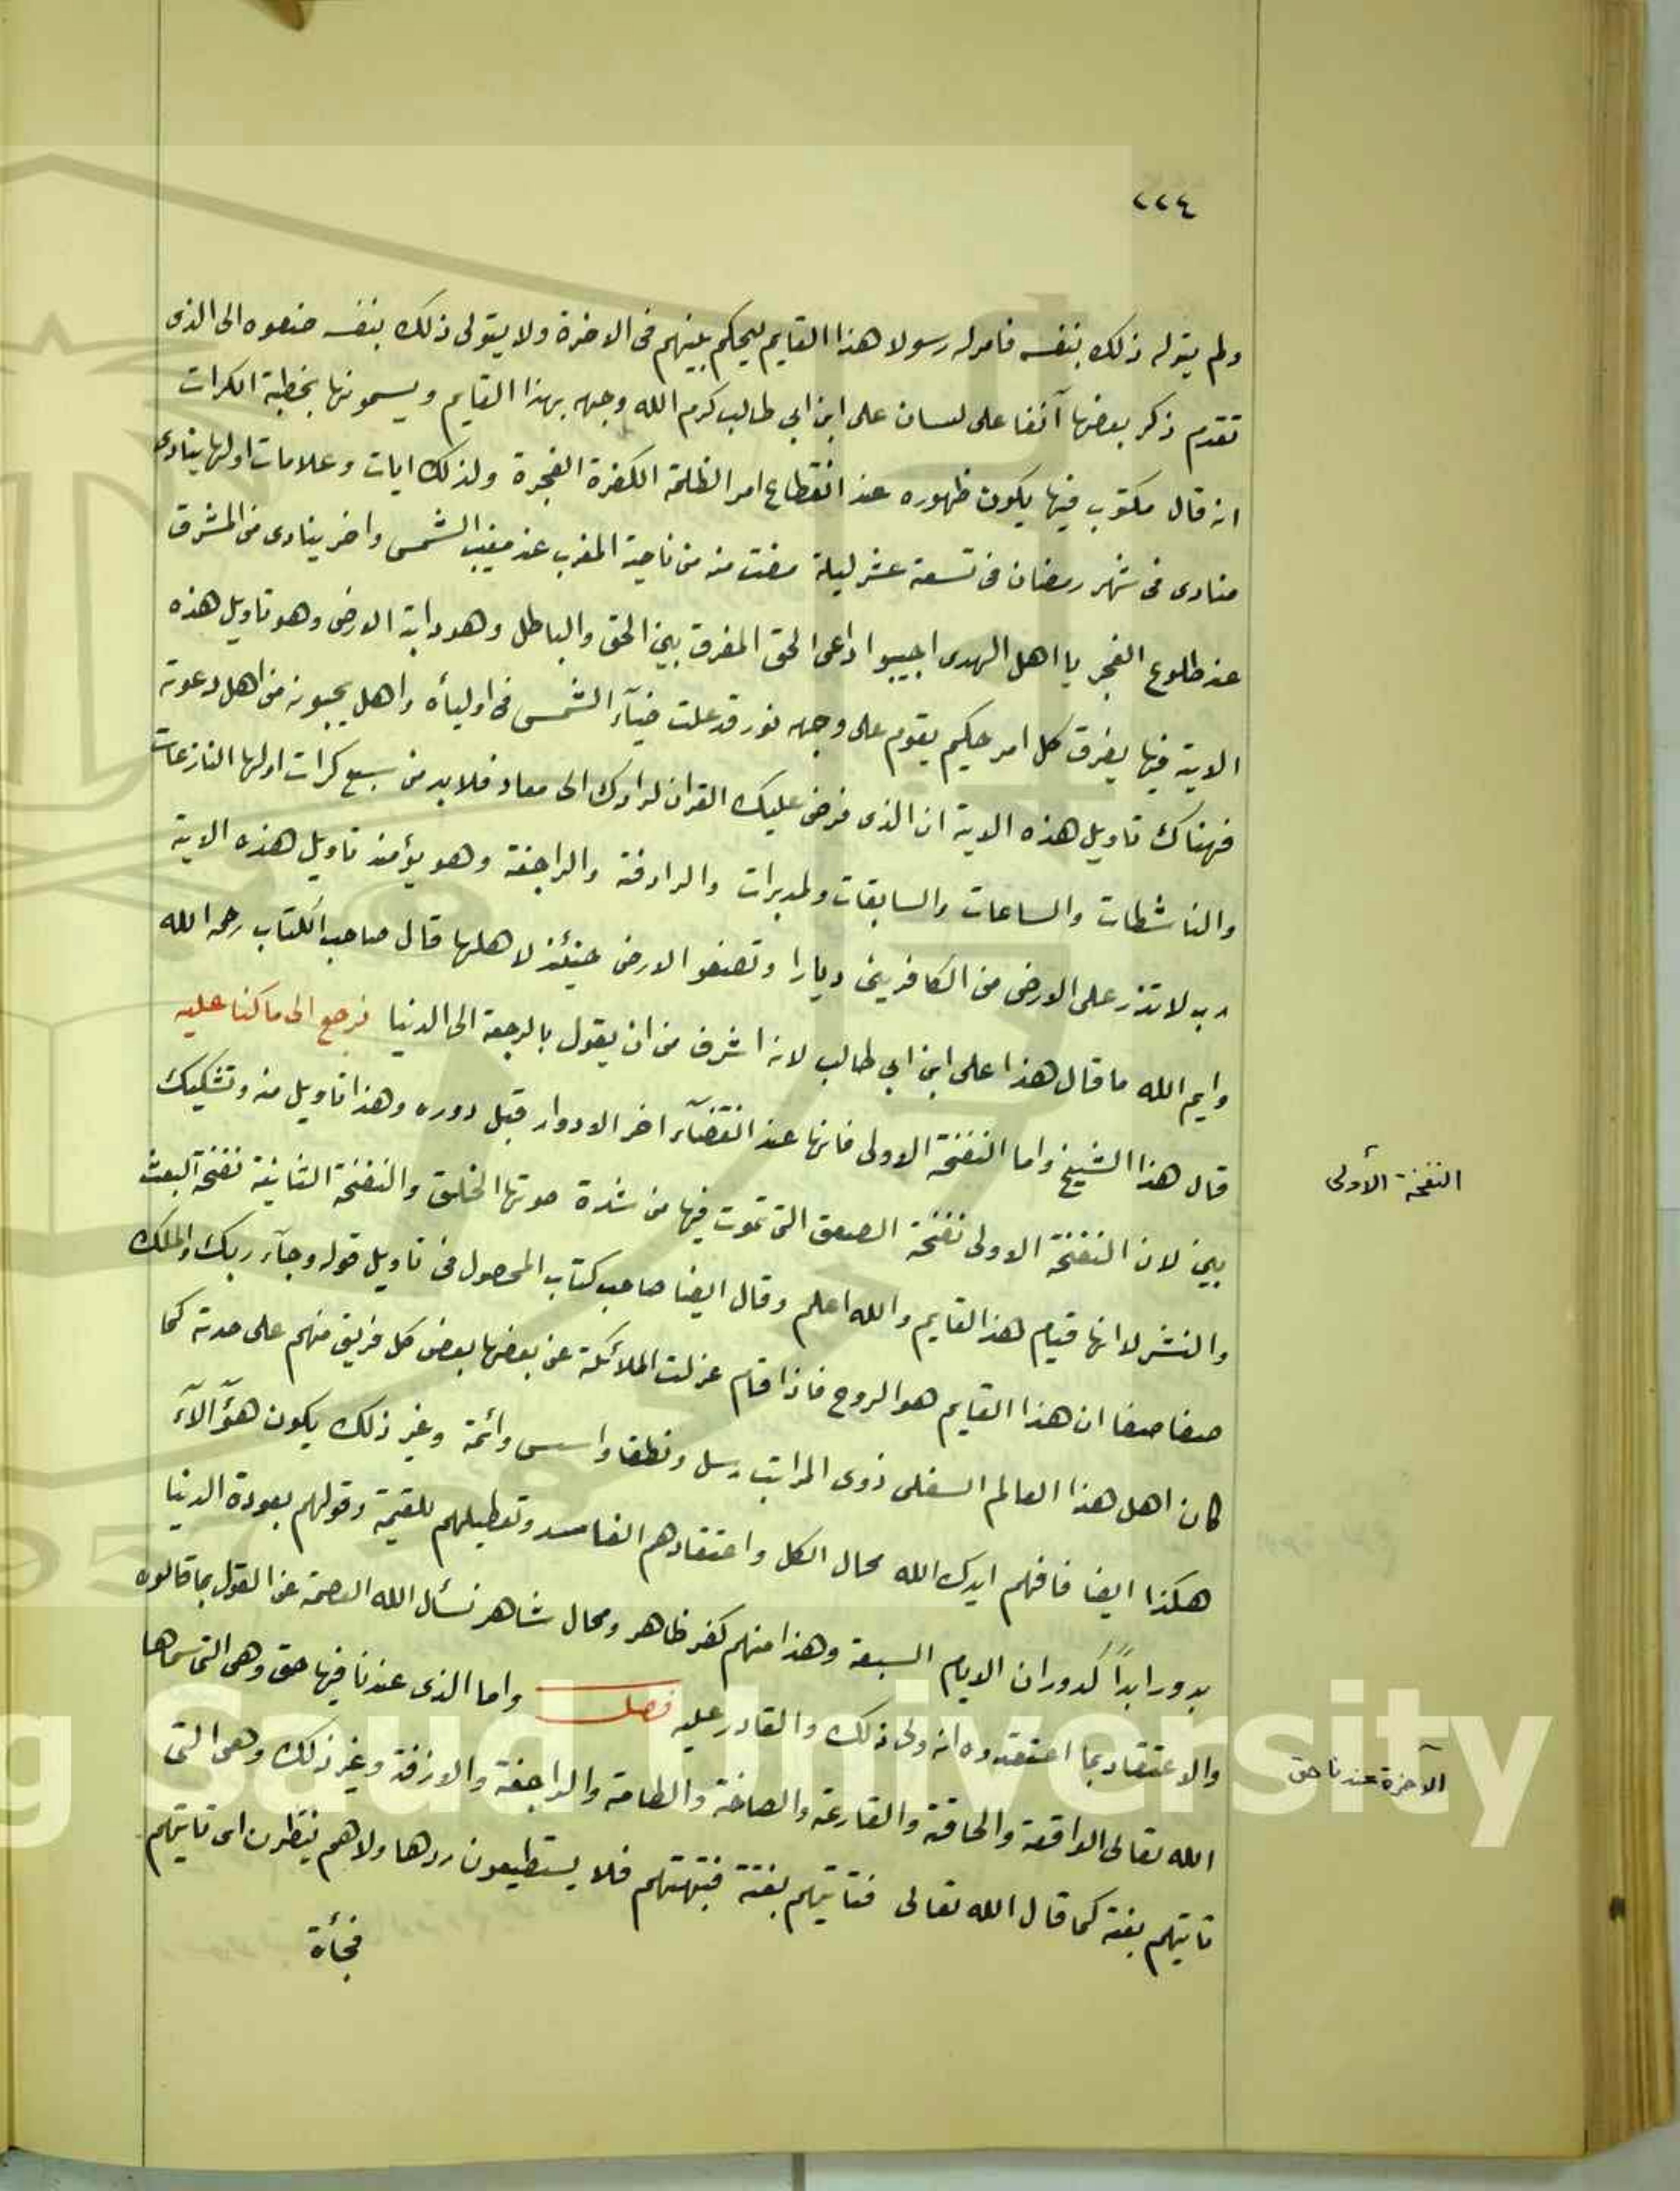 ٢٢٤
ولم يتوله ذلك بنفسه فامر له رسولا هذا القايم ليحكم بينهم فى الاخرة ولا يتولى ذلك بنفسه الى الذى
تقدم ذكر بعضها آنفا على لسان على ابن ابي طالب كرم الله وجهه بهذا القايم ويسمونها بخطبة الكرات
انه قال مكتوب فيها يكون ظهوره عند انقطاع امر الظلمة الكفرة الفجرة ولذلك ايات وعلامات اولها ينادى
منادى فى شهر رمضان فى تسعة عشر ليلة مضت منه من ناحية المغرب عند مغيب الشمس واخر ينادى من المشرق
عند طلوع الفجر يا اهل الهدى اجيبوا داعى الحق المفرق بين الحق والباطل وهو دابة الارض وهو تاويل هذه
الاية فيها يفرق كل امر حكيم يقوم على وجهه نور قد علت ضيآء الشمس فى اوليأه واهل يجيبونه من اهل دعوته
فهناك تاويل هذه الاية ان الذى فرض عليك القران لرادك الى معاد فلا بد من سبع كرات اولها النازعات
والناشطات والساعات والسابقات ولمدبرات والرادفة والراجفة وهو يؤمئذ تاويل هذه الاية
رب لا تذر على الارض من الكافرين ديارا وتصفو الارض حينئذ لاهلها قال صاحب الكتاب رحمه الله
وايم الله ما قال هذا على ابن ابي طالب لانه اشرف من ان يقول بالرجعة الى الدنيا نرجع الى ما كنا عليه
قال هذا الشيخ واما النفخة الاولى فانها عند انقضآء اخر الادوار قبل دوره وهذا تاويل منه وتشكيك
بين لان النفخة الاولى نفخة الصعق التى تموت فيها من شدة صوتها الخليق والنفخة الثانية نفخة البعث
والنشر لانها قيام لهذ القايم والله اعلم وقال ايضا صاحب كتاب المحصول فى تاويل قوله وجآء ربك والملك
صفا صفا ان هذا القايم هو الروح فاذا قام عزلت الملائكة عن بعضها بعض كل فريق منهم على حدته كما
كان اهل هذا العالم السفلى ذوى المراتب رسل ونطقا واسس وائمة وغير ذلك يكون هؤآلآء
هكذا ايضا فافهم ايدك الله محال الكل واعتقادهم الفاسد وتعطيلهم للقيمة وقولهم بعودة الدنيا
بدور ابداً كدوران الايام السبعة وهذا منهم كفر ظاهر ومحال شاهر نسأل الله العصمة عن القول بما قالوه
والاعتقاد بما اعتقدوه انه ولى ذلك والقادر عليه فصل واما الذى عندنا فيها حق وهى التى سماها
الله تعالى الواقعة والحاقة والقارعة والصاخة والطامة والراجفة والازفة وغير ذلك وهى التى
تاتيهم بغتة كما قال الله تعالى فتاتيهم بغتة فتبهتهم فلا يستطيعون ردها ولا هم ينظرون اى تاتيهم
فجأة
النفخة الأولى
الآخرة عندنا حق
g Saud University
957